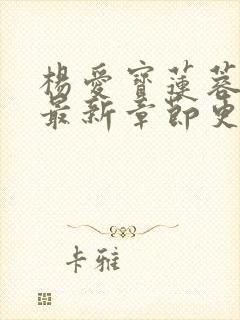 楊愛寶蓮蓉
最新章節史
卡雅